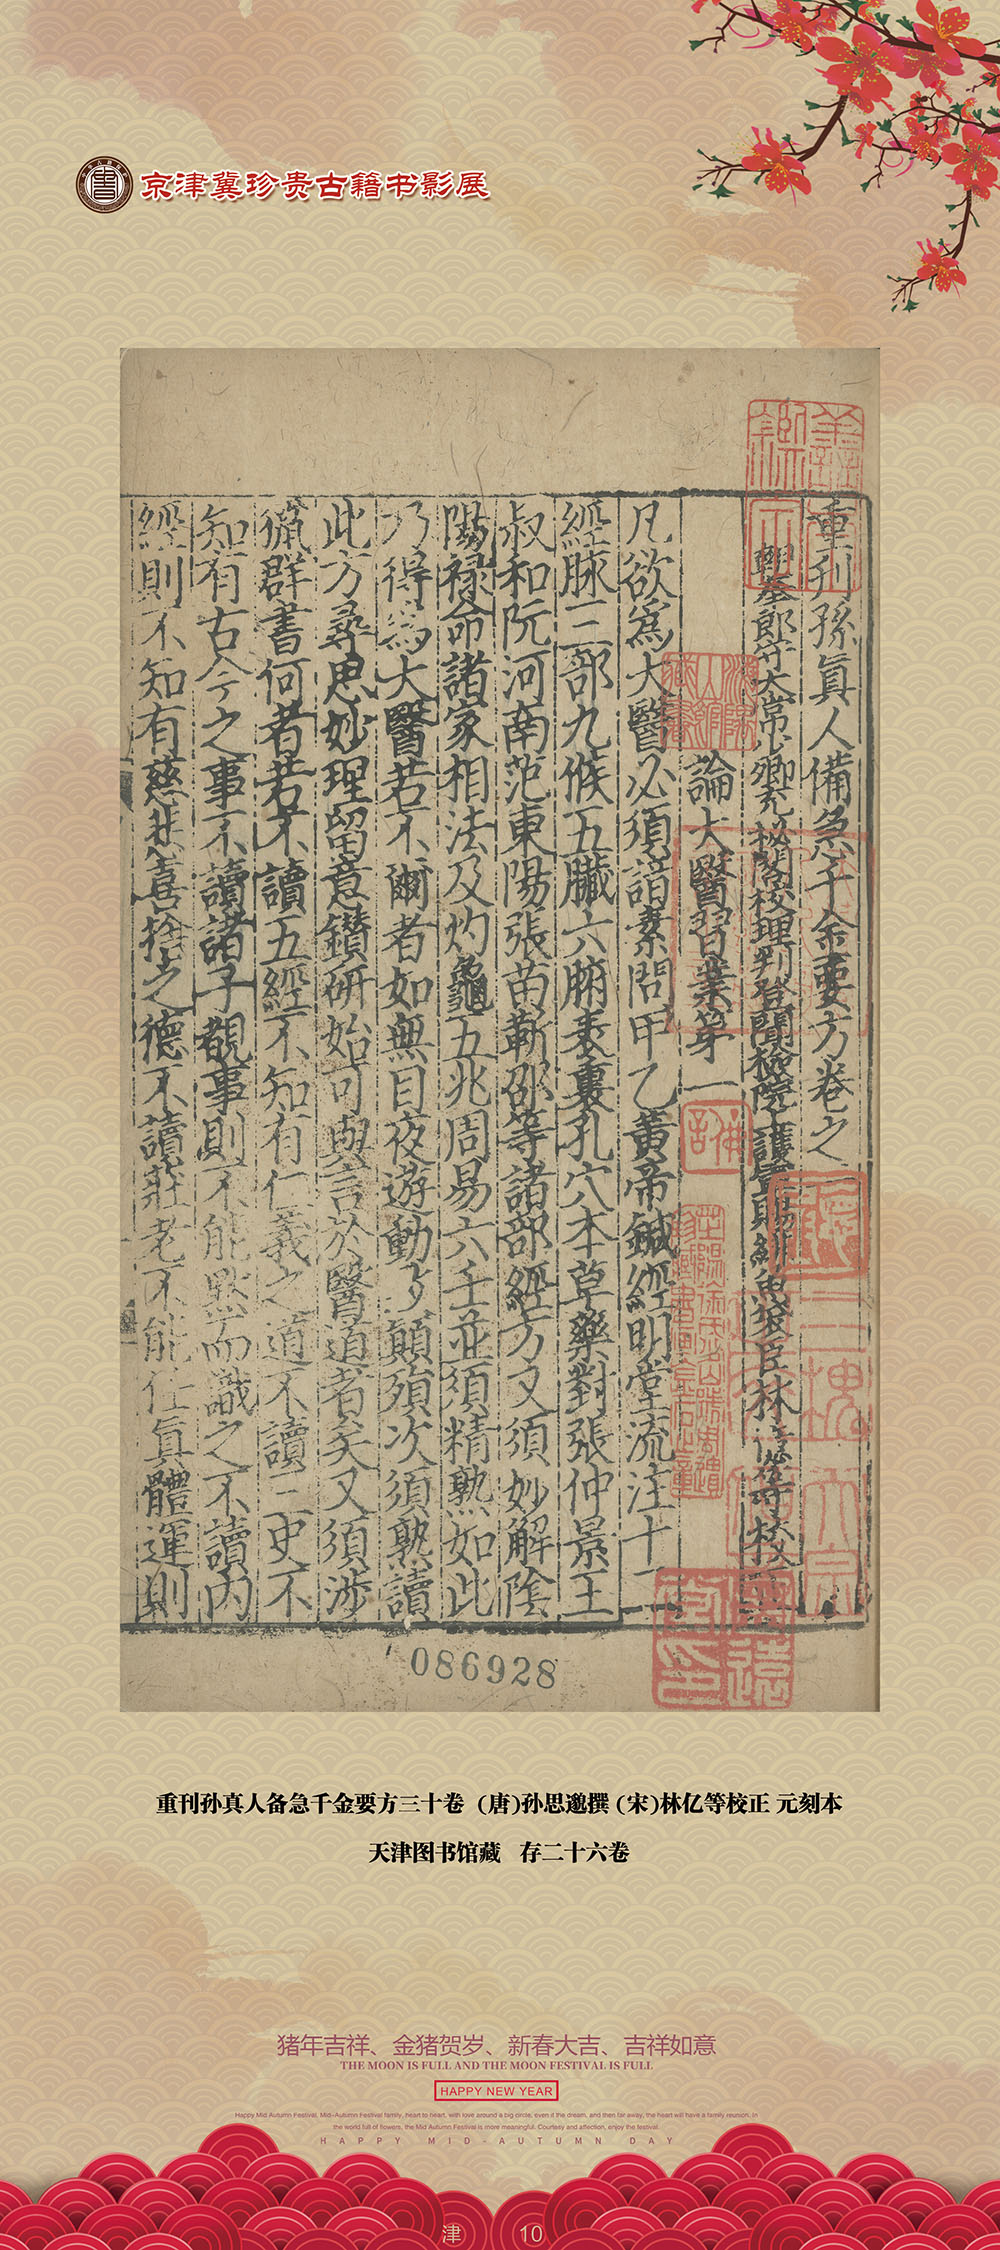 京津冀珍贵古籍书影展
重刊孫真人備急千金要方卷之
朝奉郎守太常少卿充秘閣校理判登聞檢院上護軍賜緋魚袋臣林億等校正
論大醫習業第一
凡欲爲大醫必須諳素問甲乙黃帝鍼經明堂流注十二
經脉三部九候五臟六腑表裏孔穴本草藥對張仲景王
叔和阮河南范東陽張苗靳邵等諸部經方又須妙解陰
陽禄命諸家相法及灼龜五兆周易六壬並須精熟如此
乃得爲大醫若不爾者如無目夜遊動多顛殞次須熟讀
此方尋思妙理留意鑽研始可與言於醫道者矣又須涉
獵群書何者若不讀五經不知有仁義之道不讀三史不
知有古今之事不讀諸子覩事則不能默而識之不讀内
經則不知有慈悲喜捨之德不讀莊老不能任真體運則
086928
重刊孙真人备急千金要方三十卷 (唐)孙思邈撰 (宋)林亿等校正 元刻本
天津图书馆藏 存二十六卷
猪年吉祥、金猪贺岁、新春大吉、吉祥如意
THE MOON IS FULL AND THE MOON FESTIVAL IS FULL
HAPPY NEW YEAR
Happy Mid Autumn Festival, Mid-Autumn Festival family, heart to heart, with love around a big circle, even if the dream, and then far away, the heart will have a family reunion. In
the world full of flowers, the Mid Autumn Festival is more meaningful. Courtesy and affection, enjoy the festival.
HAPPY MID-AUTUMN DAY
津 10